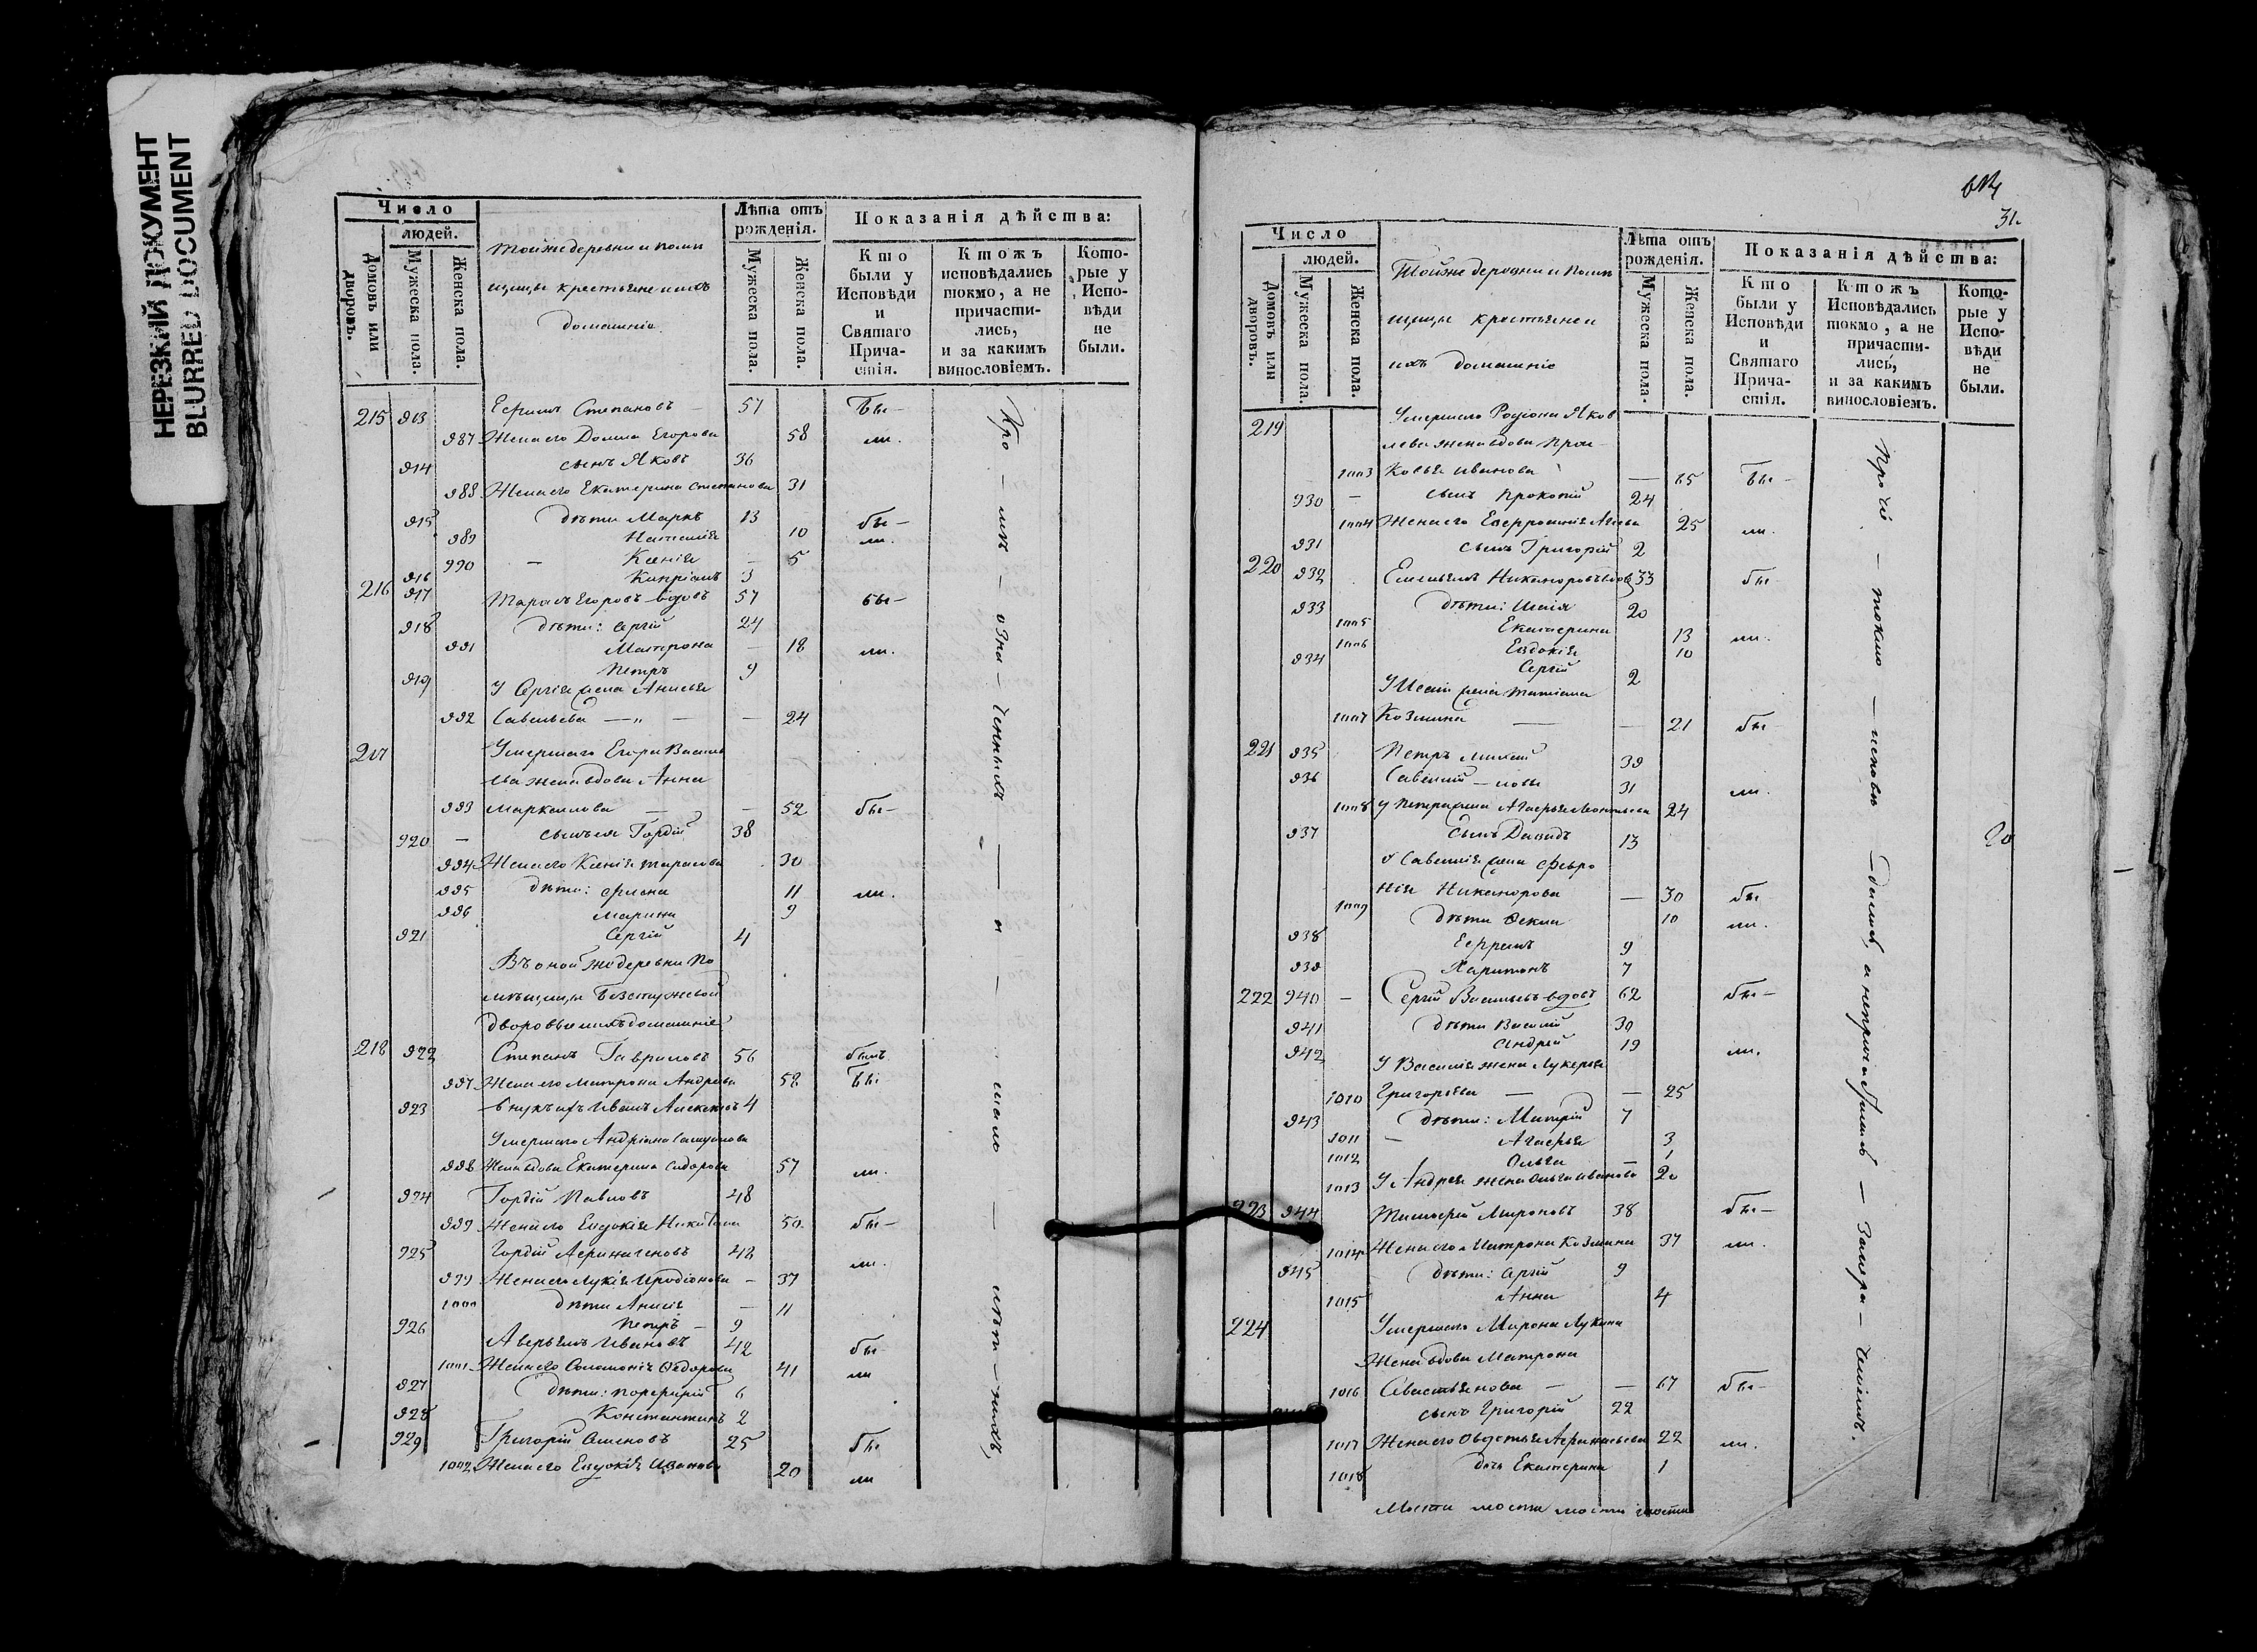 НЕРЕЗКИЙ ДОКУМЕНТ
BLURRED DOCUMENT
Число
людей.
Домовъ или дворовъ.
Мужеска пола.
Женска пола.
Тойже деревни и помѣ
щицы крестьяне и ихъ
домашніе
Лѣта отъ рожденія.
Мужеска пола.
Женска пола.
Показанія дѣйства:
Кто были у Исповѣди и Святаго Причастія.
Ктожъ исповѣдались токмо, а не причастились, и за какимъ винословіемъ.
Которые у Исповѣди не были.
215 913 Ефимъ Степановъ 57 бы-
987 Жена его Домна Егорова 58 ли.
914 сынъ Яковъ 36
988 Жена его Екатерина Степанова 31
915 дѣти Маркъ 13 бы-
989 Наталія 10 ли.
990 Ксенія 5
916 Кипріанъ 3
216 917 Тарасъ Егоровъ вдовъ 57 бы-
918 дѣти: Сергій 24
991 Матрона 18 ли.
919 Петръ 9
У Сергія жена Анисья
992 Савельева 24
217 Умершаго Егора Василь
ева жена вдова Анна
993 Маркелова 52 бы-
920 сынъ ея Гордій 38
994 Жена его Ксенія Тарасова 30
995 дѣти: 11 ли.
996 Марина 9
921 Сергій 4
Въ оной же деревни по
мѣщицы Безстужевой
дворовые и ихъ домашніе
218 922 Степанъ Гавриловъ 56 былъ
997 Жена его Матрона Андреева 58 бы-
923 внукъ ихъ Иванъ 4
Умершаго Андріана
998 Жена вдова Екатерина Сидорова 57 ли.
924 Гордій Павловъ 48
999 Жена его Евдокія Никитина 50 бы-
925 Гордій 48 ли.
999 Жена его Лукія Иродіонова 37
1000 дѣти Анисія 11
926 Петръ 9
Аверьянъ Ивановъ 42 бы-
1001 Жена его Соломонія Ѳедорова 41 ли
927 дѣти: Порфирій 6
928 Константинъ 2
929 Григорій Семеновъ 25 бы-
1002 Жена его Евдокія Иванова 20 ли
31.
Число
людей.
Домовъ или дворовъ.
Мужеска пола.
Женска пола.
Тойже деревни и помѣ
щицы крестьяне и
ихъ домашніе
Лѣта отъ рожденія.
Мужеска пола.
Женска пола.
Показанія дѣйства:
Кто были у Исповѣди и Святаго Причастія.
Ктожъ Исповѣдались токмо, а не причастились, и за какимъ винословіемъ.
Которые у Исповѣди не были.
219 Умершаго Родіона Яков
лева жена вдова Прос
1003 ковья Иванова 65 бы-
930 сынъ Прокопій 24
1004 Жена его 25 ли.
931 сынъ Григорій 2
220 932 Емельянъ Никаноровъ вдовъ 33 бы-
933 дѣти: Исаія 20
1005 Екатерина 13 ли.
1006 Евдокія 10
934 Сергій 2
У Исаіи жена Татіана
1007 Козмина 21 бы
221 935 Петръ 39
936 Савелій 31 ли.
1008 У Петра жена Агафья Леонтьева 24
937 сынъ Давидъ 13
У Савелія жена Февро
нія Никанорова 30 бы
1009 дѣти Ѳекла 10 ли.
938 Ефремъ 9
939 Харитонъ 7
222 940 Сергій Васильевъ вдовъ 62 бы-
941 дѣти Василій 30
942 Андрей 19 ли.
У Василія жена Лукерья
1010 Григорьева 25
943 дѣти: Митрій 7
1011 Агафья 3
1012 Ольга 1
1013 У Андрея жена Ольга Иванова 20
223 944 Тимофей Мироновъ 38 бы-
1014 Жена его Матрона Козмина 37 ли.
945 дѣти: Сергій 9
1015 Анна 4
224 Умершаго Мирона Лукина
Жена вдова Матрона
1016 Севастьянова 67 бы-
сынъ Григорій 22
1017 Жена его Авдотья Афанасьева 22 ли.
1018 дочь Екатерина 1